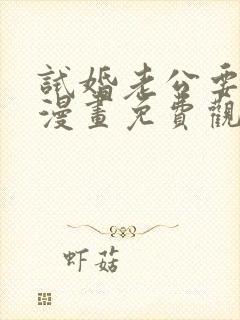 試婚老公要
漫畫免費觀
虾菇